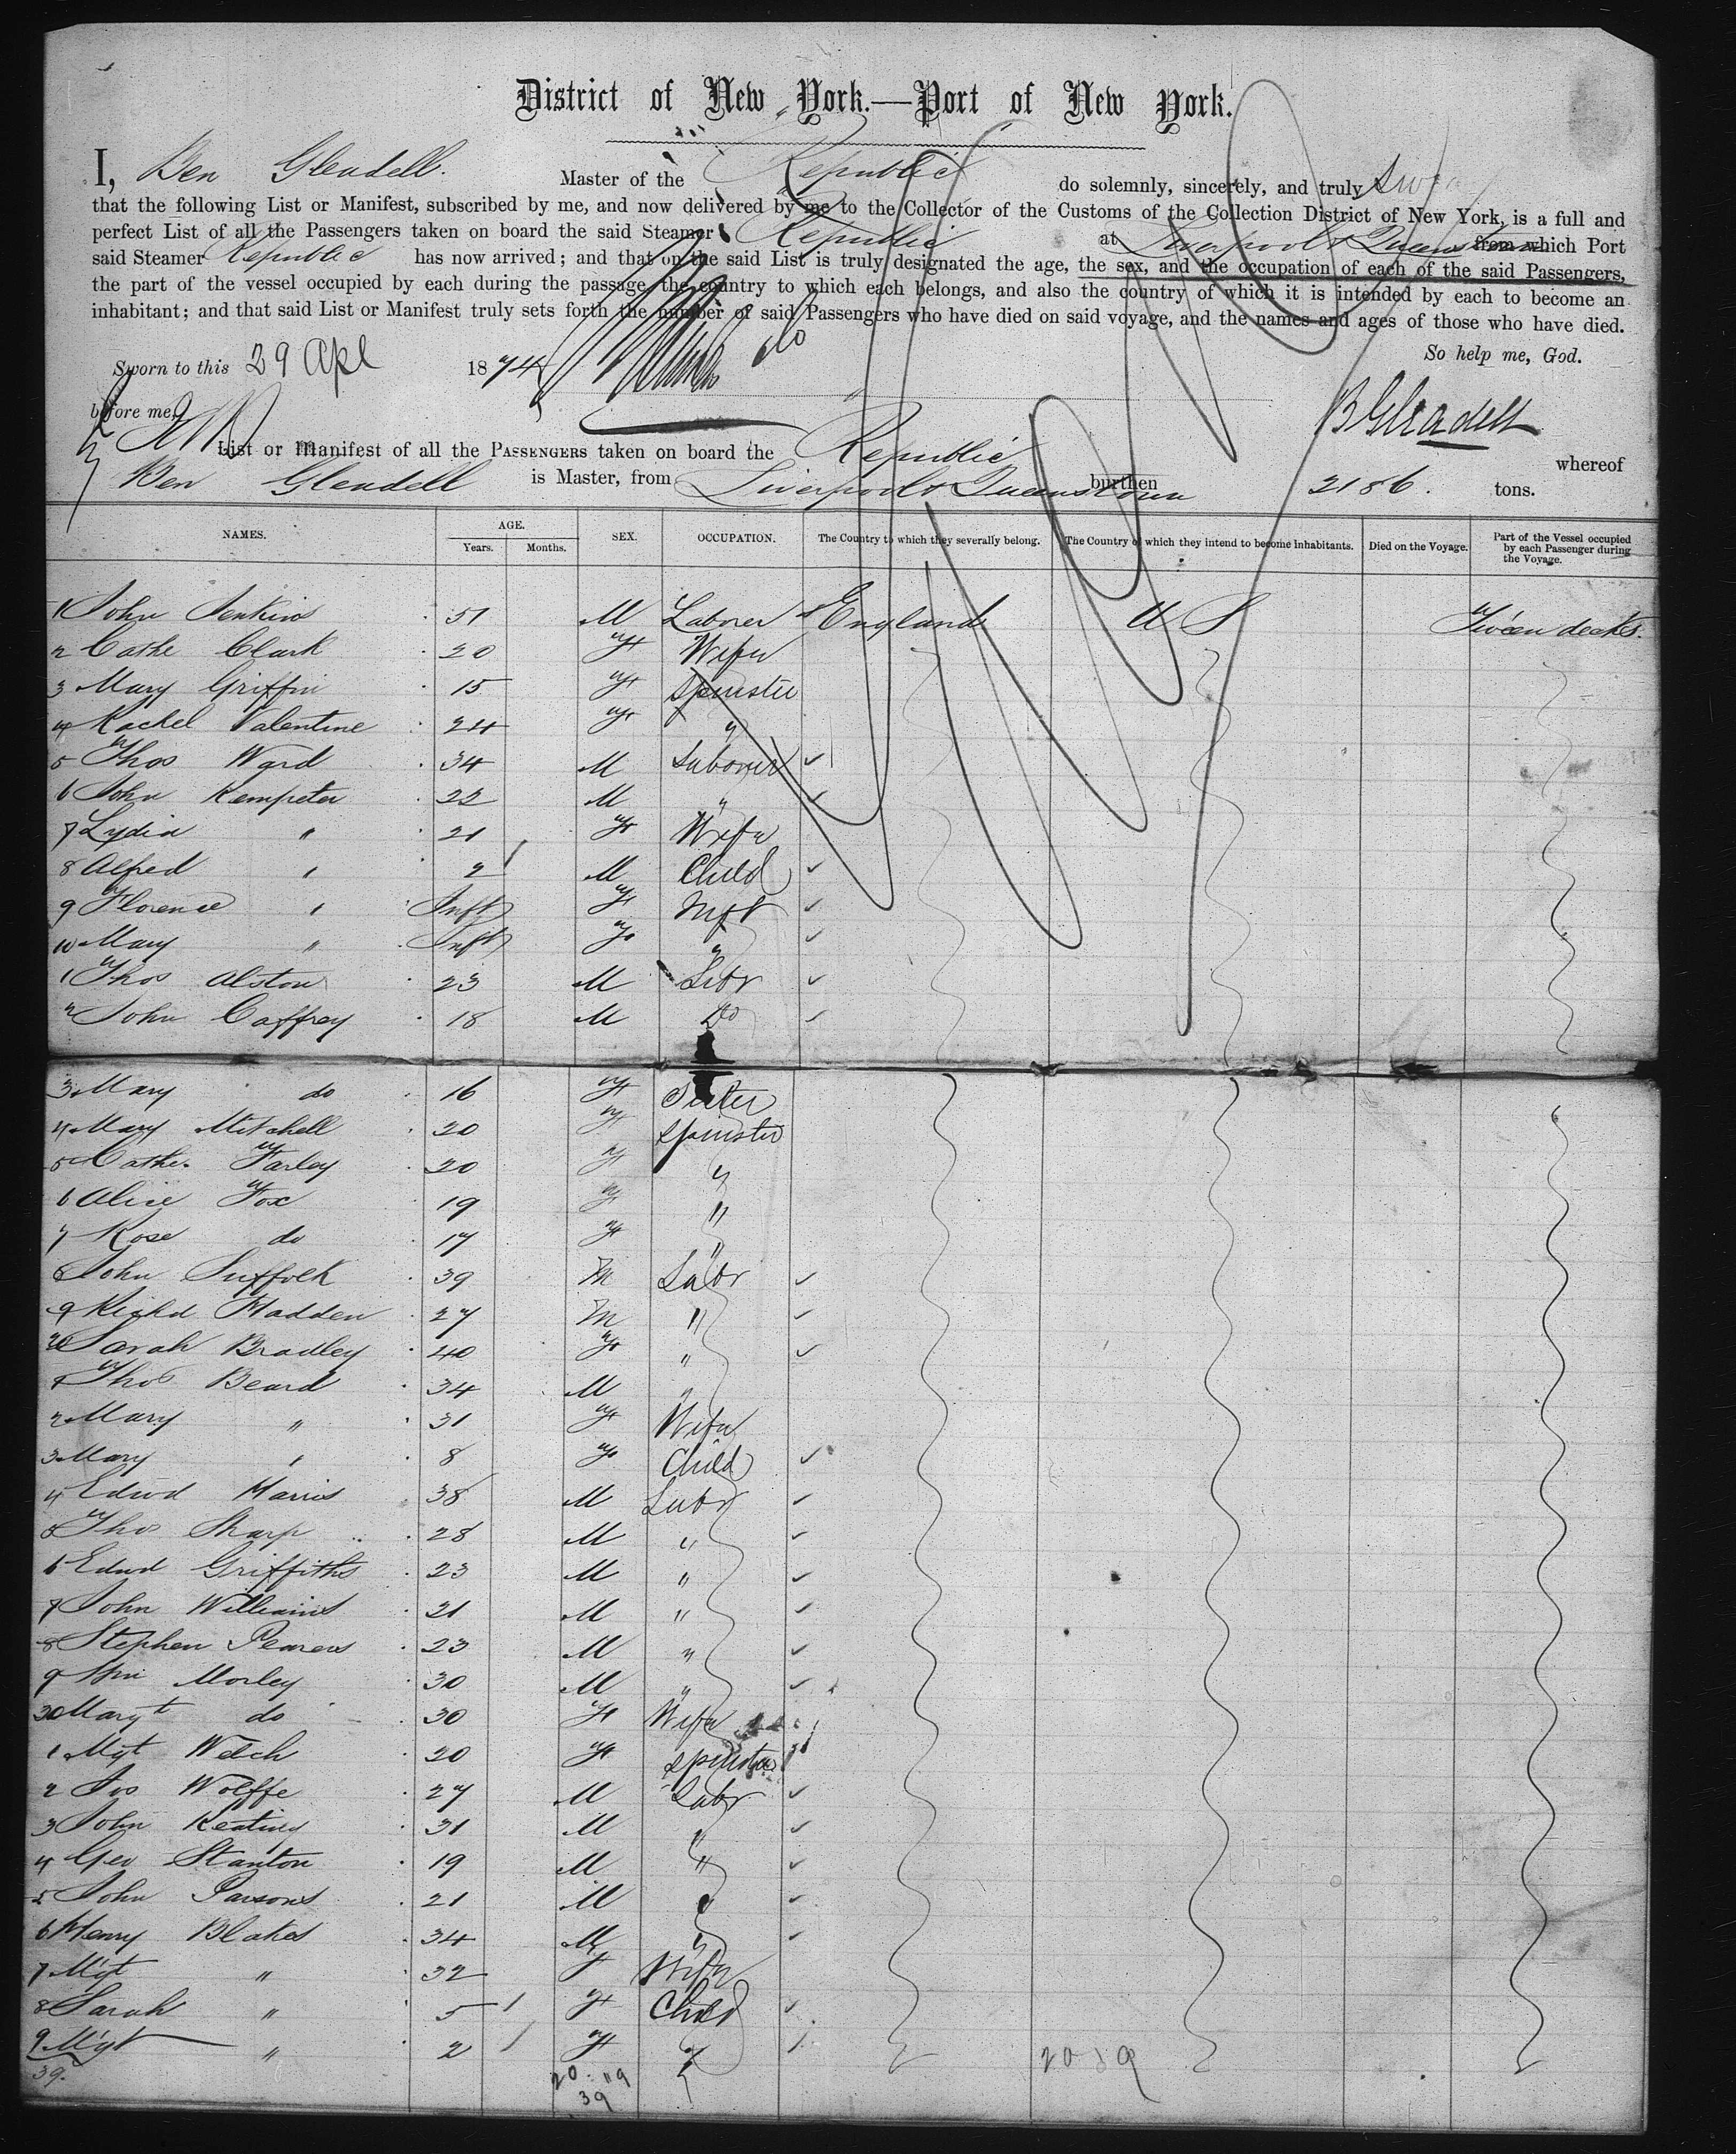 District of New York.—Port of New York.
I, Ben Gleadell. Master of the Republic do solemnly, sincerely, and truly swear
that the following List or Manifest, subscribed by me, and now delivered by me to the Collector of the Customs of the Collection District of New York, is a full and
perfect List of all the Passengers taken on board the said Steamer Republic at Liverpool & Queenstown from which Port
said Steamer Republic has now arrived; and that on the said List is truly designated the age, the sex, and the occupation of each of the said Passengers,
the part of the vessel occupied by each during the passage, the country to which each belongs, and also the country of which it is intended by each to become an
inhabitant; and that said List or Manifest truly sets forth the number of said Passengers who have died on said voyage, and the names and ages of those who have died.
So help me, God.
Sworn to this 29 Apl 1874
before me,
B Gleadell
List or Manifest of all the PASSENGERS taken on board the Republic whereof
Ben Gleadell is Master, from Liverpool & Queenstown burthen 2186. tons.
NAMES. AGE. Years. Months. SEX. OCCUPATION. The Country to which they severally belong. The Country of which they intend to become inhabitants. Died on the Voyage. Part of the Vessel occupied by each Passenger during the Voyage.
1 John Jenkins 51 M Laborer England U S Tween decks.
2 Cathe Clark 20 F Wife
3 Mary Griffin 15 F Spinster
4 Rachel Valentine 24 F "
5 Thos Ward 34 M Laborer
6 John Kempster 22 M "
7 Lydia " 21 F Wife
8 Alfred " 2 M Child
9 Florence " Inft F Inft
10 Mary " Inft F "
1 Thos Alston 23 M Labr
2 John Caffrey 18 M Do
3 Mary do 16 F Sister
4 Mary Mitchell 20 F Spinster
5 Cathe. Farley 20 F "
6 Alice Fox 19 F "
7 Rose do 17 F "
8 John Suffolk 39 M Labr
9 Richd Hadden 27 M "
20 Sarah Bradley 40 F "
1 Thos Beard 34 M "
2 Mary " 31 F Wife
3 Mary " 8 F Child
4 Edwd Harris 38 M Labr
5 Thos Sharp 28 M "
6 Edwd Griffiths 23 M "
7 John Williams 21 M "
8 Stephen 23 M "
9 Morley 30 M "
30 Margt do 30 F Wife
1 Mgt Welch 20 F Spinster
2 Jos Wolffe 27 M Labr
3 John Keating 31 M "
4 Geo Stanton 19 M "
5 John Parsons 21 M "
6 Henry Blakes 34 M "
7 Mgt " 32 F Wife
8 Sarah " 5 F Child
9 Mgt " 2 F "
39. 20 19
39